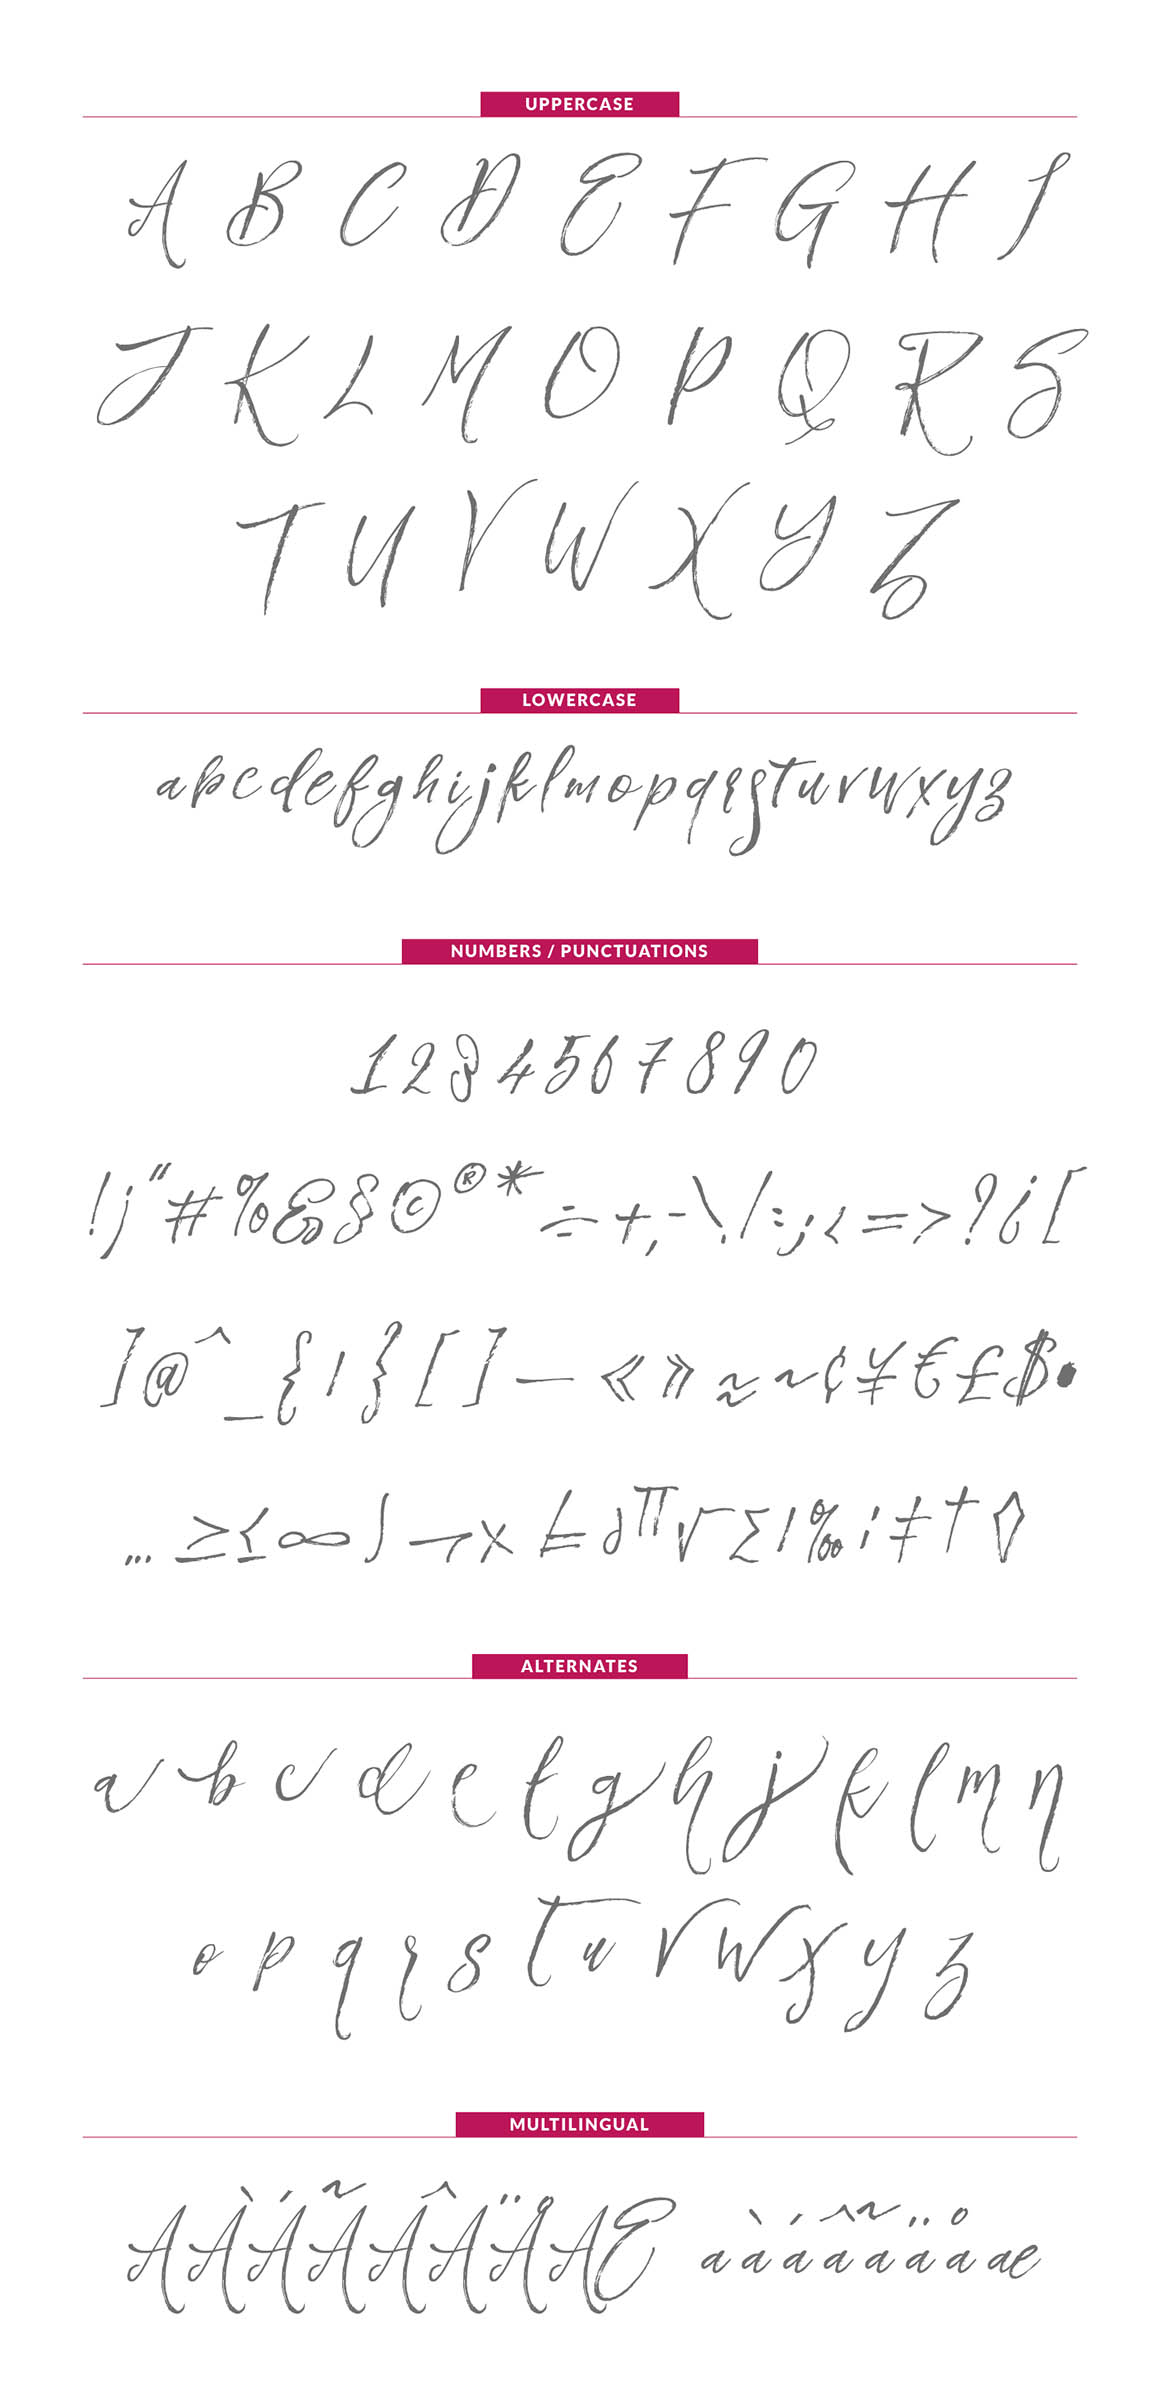 UPPERCASE
A B C D E F G H I
J K L M O P Q R S
T U V W X Y Z
LOWERCASE
abcdefghijklmopqrstuvwxyz
NUMBERS / PUNCTUATIONS
1 2 3 4 5 6 7 8 9 0
! j " # % & § © ® * ÷ + , - \ . / : ; < = > ? ¿ [
] @ ^ _ { | } [ ] — « » ≈ ~ ¢ ¥ € £ $ •
... ≥ ≤ ∞ ∫ ¬ × ≠ ∂ π √ Σ | ‰ ¦ ‡ † ◊
ALTERNATES
a b c d e f g h j k l m n
o p q r s t u v w x y z
MULTILINGUAL
A À Á Ã Â Ä Å Æ a à á â ã ä å æ